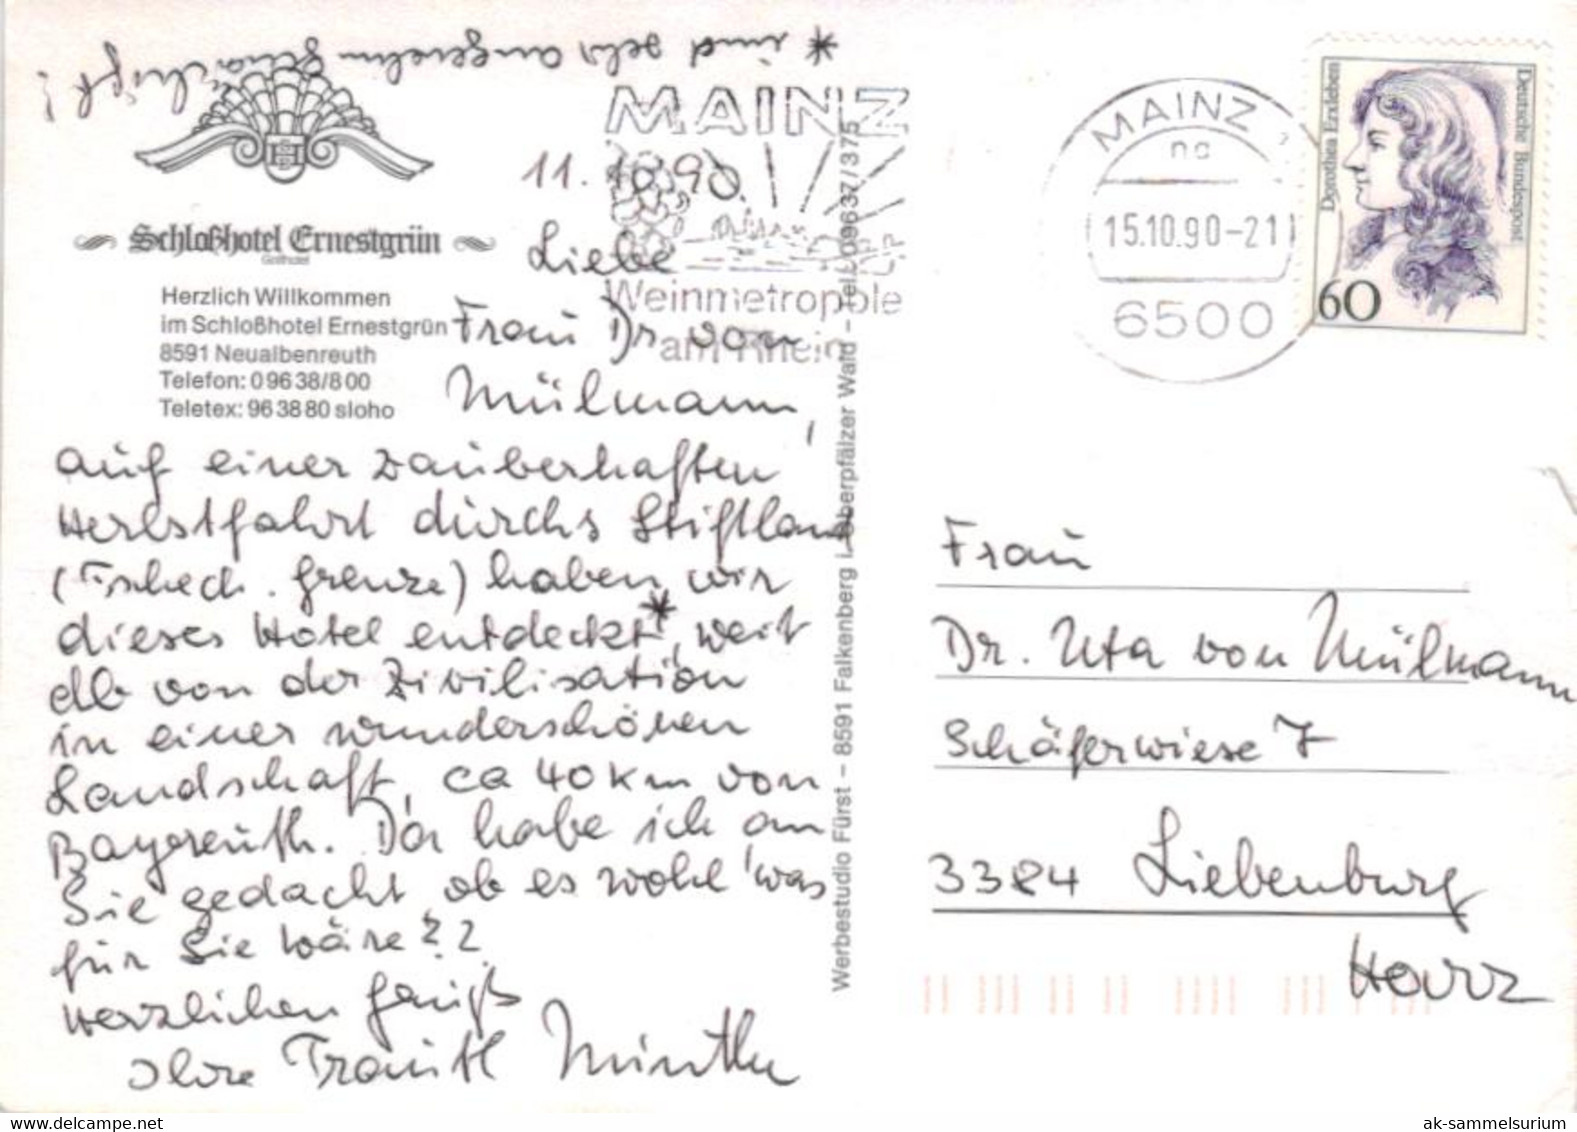 * und sehr angenehm
!
Schloßhotel Ernestgrün
Golfhotel
Herzlich Willkommen
im Schloßhotel Ernestgrün
8591 Neualbenreuth
Telefon: 0 96 38/8 00
Teletex: 96 38 80 sloho
11. 10. 90
Liebe
Frau Dr. von
Mülmann,
auf einer zauberhaften
Herbstfahrt durchs Stiftland
(Tschech. Grenze) haben wir
dieses Hotel entdeckt*, weit
ab von der Zivilisation
in einer wunderschönen
Landschaft, ca 40 km von
Bayreuth. Da habe ich an
Sie gedacht, ob es wohl was
für Sie wäre??
Herzlichen Gruß
Ihre Trautl
Werbestudio Fürst – 8591 Falkenberg i. Oberpfälzer Wald – Tel. 09637/375
MAINZ
Weinmetropole
am Rhein
MAINZ 1
na
15.10.90-21
6500
Dorothea Erxleben
Deutsche Bundespost
60
Frau
Dr. Uta von Mülmann
Schäferwiese 7
3384 Liebenburg
Harz
ak-ansichtskarten.de
ak-sammelsurium.com